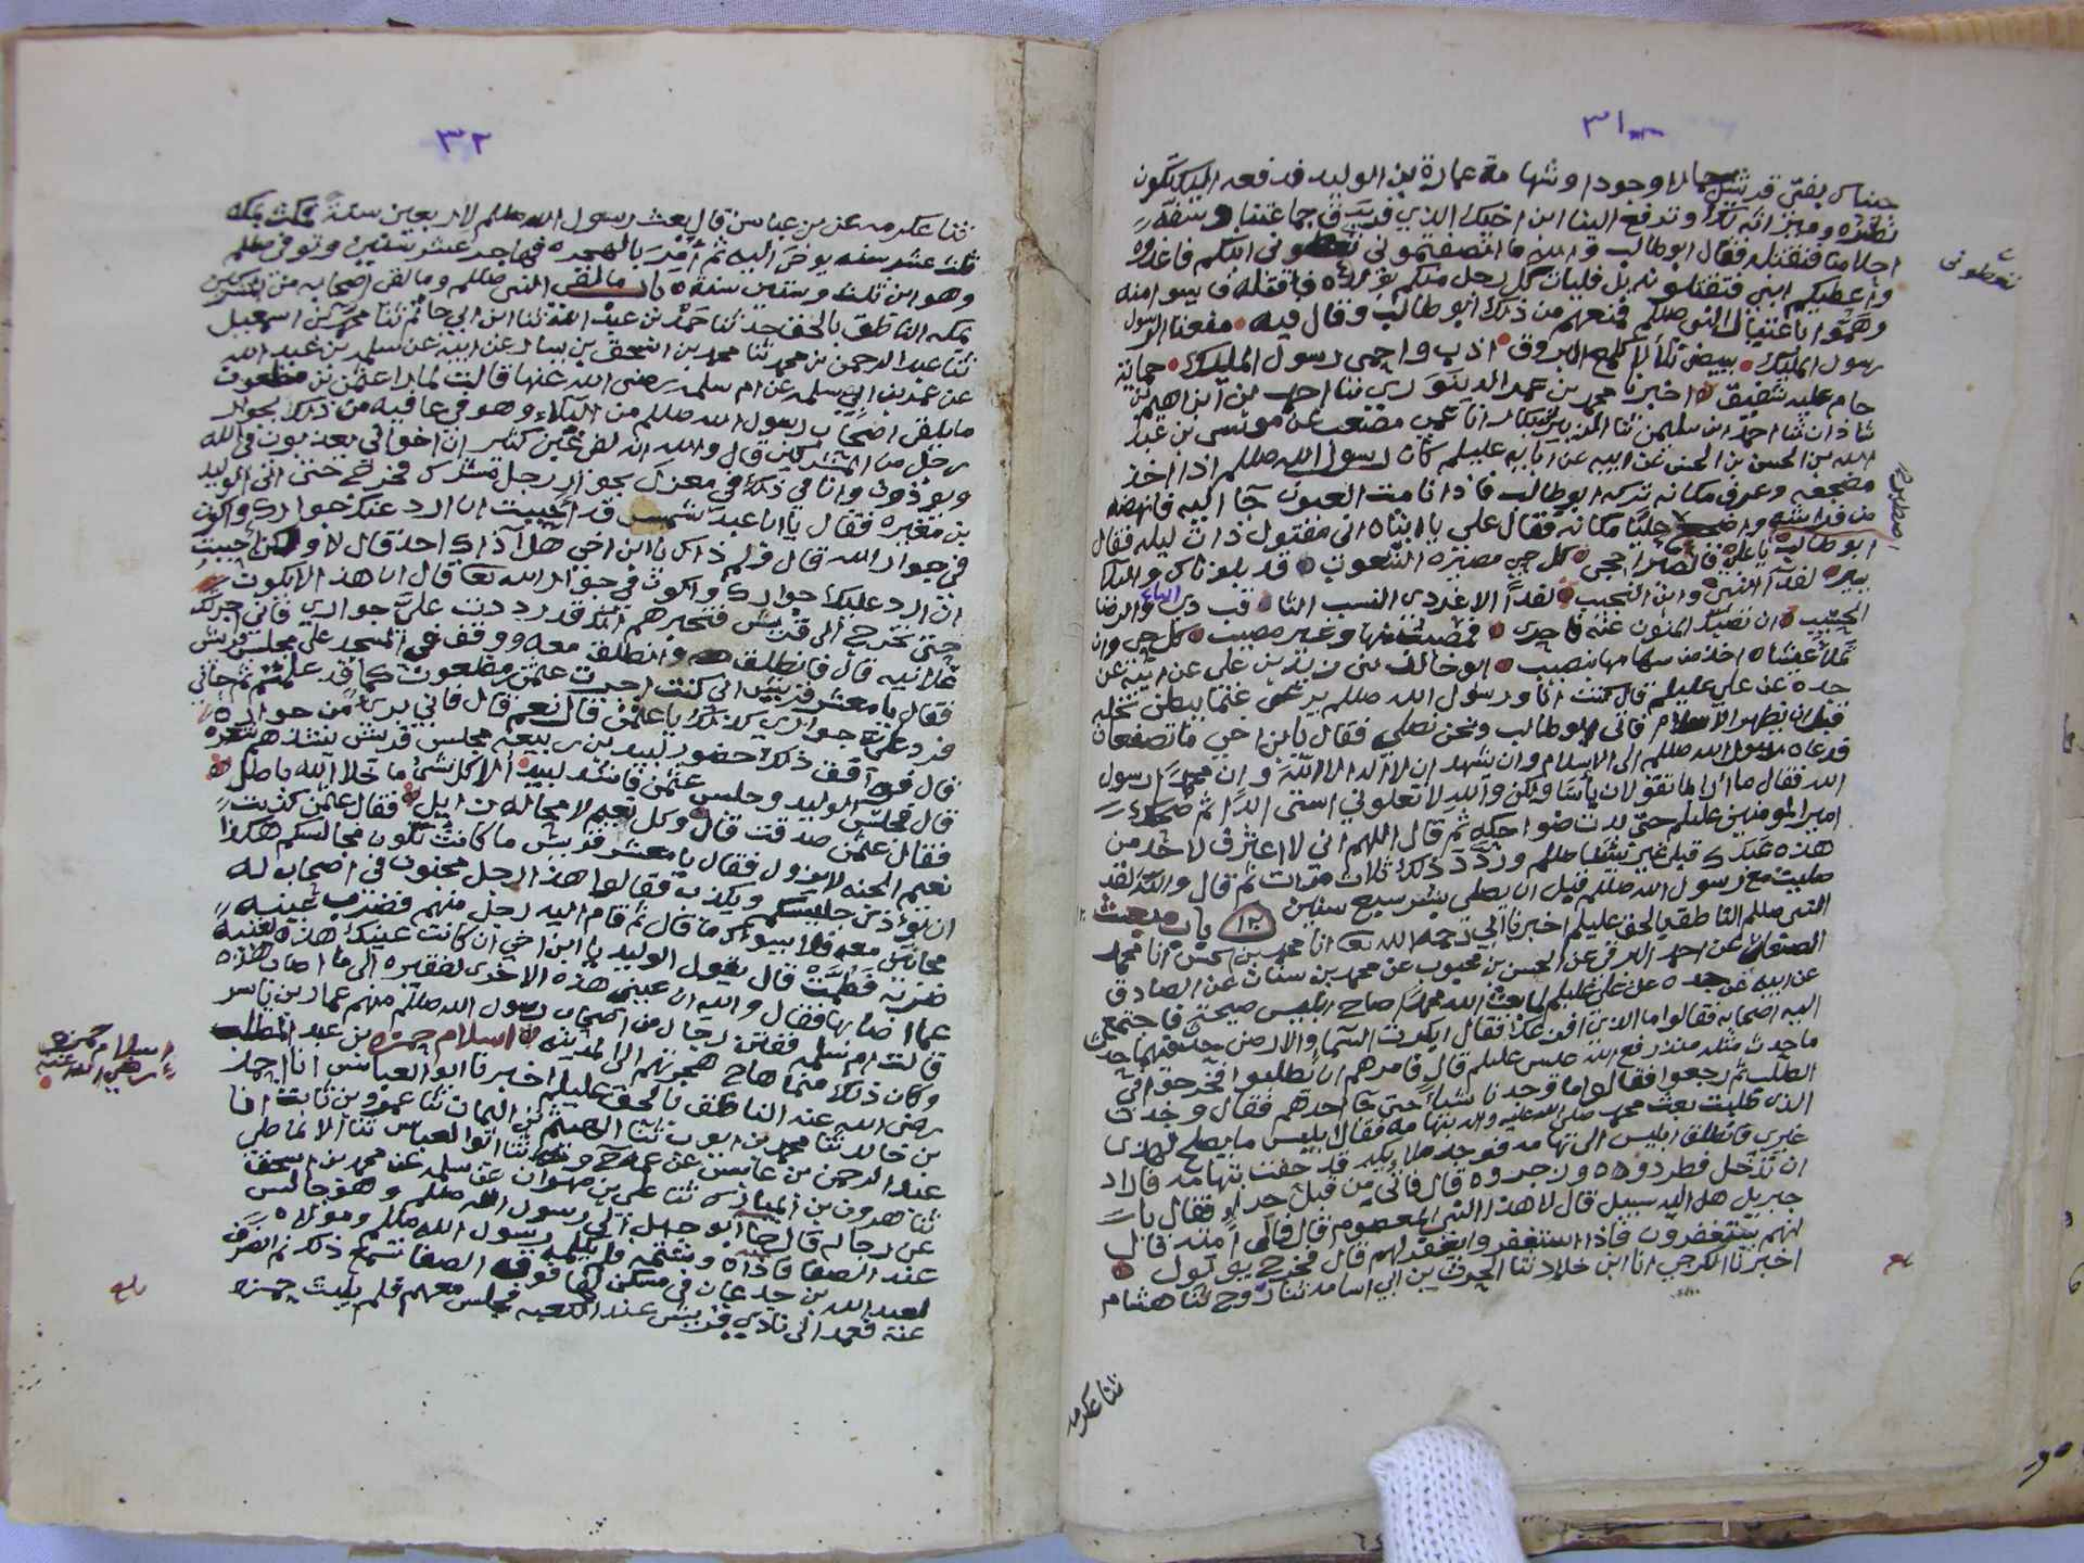 ٣١
جئناك بفتى قريش جمالا وجودا وشهامة عمارة بن الوليد فندفعه اليك يكون
نصره وميراثه لك وتدفع الينا ابن اخيك الذي فرق جماعتنا وسفه
احلامنا فنقتله فقال ابو طالب والله ما انصفتموني تعطوني ابنكم فاغذوه
تعطونى
واعطيكم ابني فتقتلونه بل فليات كل رجل منكم بولده فاقتله فايسوا منه
وهموا باغتيال النبي صللم فمنعهم من ذلك ابو طالب وقال فيه منعنا الرسول
رسول المليك ببيض تلألأ كلمع البروق اذب واحمى رسول المليك حماية
حام عليه شفيق اخبرنا محمد بن الدينوري ثنا احمد بن ابراهيم بن
شاذان ثنا احمد بن سليمن ثنا الزبير بن بكار انا عمي مصعب عن موسى بن عبد
الله بن الحسن بن الحسن عن ابيه عن آبائه عليلم كان رسول الله صللم اذا اخذ
مضجعه وعرف مكانه تركه ابو طالب فاذا نامت العيون جا اليه فانهضه
من فراشه واضجع عليا مكانه فقال علي يا ابتاه اني مقتول ذات ليله فقال
ابو طالب اصبرن يا علي فالصبر احجى كل حي مصيره لشعوب قد بلوناك والبلا
اصطبرن
لفدآ النجيب وابن النجيب لفدآ الاغر ذي النسب الثاقب ذي الباع والرضا
الحسيب ان تصبك المنون عنه فاحرى فمصيب منها وغير مصيب كل حي وان
تملا عيشاه اخذ من سهامها بنصيب ابو خالد عن زيد بن علي عن ابيه عن
جده عن علي عليلم قال كنت انا ورسول الله صللم نرعى غنما ببطن نخله
قبل ان يظهر الاسلام فاتى ابو طالب ونحن نصلي فقال يا ابن اخي ما تصنعان
فدعاه رسول الله صللم الى الاسلام وان يشهد ان لا اله الا الله وان محمدا رسول
الله فقال ما ارى لما تقولان بأسا ولكن والله لا تعلوني استي ابدا ثم ضحك
امير المومنين عليلم حتى بدت ضواحكه ثم قال اللهم اني لا اعترف لاحد من
هذه عبدك قبلي غير نبينا صللم وردد ذلك ثلاث مرات ثم قال والله لقد
صليت مع رسول الله صللم قبل ان يصلي بشر سبع سنين ١٢ باب مبعث
النبي صللم الناطق بالحق عليلم اخبرنا ابي رحمه الله تعا انا محمد بن الحسن انا محمد
الصفار عن احمد البرقي عن الحسن بن محبوب عن محمد بن سنان عن الصادق
عن ابيه عن جده عن علي عليلم لما بعث الله محمدا صاح ابليس صيحة فاجتمع
اليه اصحابه فقالوا ما الذي افزعك فقال انكرت السما والارض حدث فيهما حدث
ما حدث مثله منذ رفع الله عيسى عليلم قال فامرهم ان يطلبوا فخرجوا في
الطلب ثم رجعوا فقالوا ما وجدنا شيئا حتى جآ احدهم فقال وجدت
الذي طلبت بعث محمد صلى الله عليه واله بتهامه فقال ابليس ما يصلح لهذا
غيري فانطلق ابليس الى تهامه فوجد ملايكه قد حفت بتهامه فاراد
ان تدخل فطردوه وزجروه قال فاتى من قبل حرا فقال يا
جبريل هل اليه سبيل قال لا هذا النبي المعصوم قال فالى امته قال
انهم يستغفرون فاذا استغفروا يغفر لهم قال فخرج يولول
اخبرنا الكرجي انا ابن خلاد ثنا الحرث بن ابي اسامه ثنا روح ثنا هشام
ثنا عكرمه
٣٢
ثنا عكرمه عن بن عباس قال بعث رسول الله صللم لاربعين سنة فمكث بمكه
ثلث عشر سنه يوحى اليه ثم امر بالهجره فهاجر عشر سنين وتوفى صللم
وهو ابن ثلث وستين سنة باب ما لقي النبي صللم وما لقى اصحابه من المشركين
بمكه الناطق بالحق حدثنا حمد بن عبد الله ثنا ابن ابي حاتم ثنا محمد بن اسمعيل
ثنا عبد الرحمن بن محمد ثنا محمد بن اسحق بن يسار عن ابيه عن سلمه بن عبد الله
عن عمر بن ابي سلمه عن ام سلمه رضى الله عنها قالت لما راى عثمن بن مظعون
ما يلقى اصحاب رسول الله صللم من البلاء وهو في عافيه من ذلك بجوار
رجل من المشركين قال والله ان لفي غبن كثير ان اخواني يعذبون في الله
ويوذون وانا في ذلك في معزل بجوار رجل مشرك فخرج حتى اتى الوليد
بن مغيره فقال يا ابا عبد شمس قد احببت ان ارد عنك جوارك واكون
في جوار الله قال ولم ذاك يا ابن اخي هل آذاك احد قال لا ولكن احببت
ان ارد عليك جوارك واكون في جوار الله تعا قال ان هذا لا يكون
حتى تخرج الى قريش فتخبرهم انك قد رددت علي جواري فاني اجرتك
علانيه قال فانطلق وانطلق معه ووقف في المسجد على مجلس قريش
فقال يا معشر قريش اني كنت اجرت عثمن بن مظعون كما قد علمتم ثم جاني
فرد علي جواري كذلك يا عثمن قال نعم قال فاني بري من جواره
قال فوافق ذلك حضور لبيد بن ربيعه مجلس قريش ينشدهم شعره
قال فجلس الوليد وجلس عثمن فانشد لبيد الا كل شئ ما خلا الله باطل
فقال عثمن صدقت قال وكل نعيم لا محاله زايل فقال عثمن كذبت
نعيم الجنه لا يزول فقال يا معشر قريش ما كانت تكون مجالسكم هكذا
ان يوذى جليسكم ويكذب فقالوا هذا الرجل مجنون في اصحاب له
مجانين معه فلا يسوك ما قال ثم قام اليه رجل منهم فضرب عينيه
ضربة فطمت قال يقول الوليد يا ابن اخي ان كانت عينك هذه لغنيه
عما اصابها فقال والله ان عيني هذه الاخرى لفقيره الى ما اصاب هذه
قالت ام سلمه ففتن رجال من اصحاب رسول الله صللم منهم عمار بن ياسر
وكان ذلك مما هاج هجرتهم الى المدينه اسلام حمزه بن عبد المطلب
اسلام حمزه رضي الله عنه
رضى الله عنه الناطق بالحق عليلم اخبرنا ابو العباس انا احمد
بن خالد ثنا محمد بن ايوب ثنا الهيثم بن اليمان ثنا عمرو بن ثابت انا
عبد الرحمن بن عابس عن عمه ح وثنا ابو العباس ثنا الانماطي
ثنا هرون بن المبارك ثنا علي بن مهران عن سلمه عن محمد بن اسحق
عن رجاله قال جا ابو جهل الى رسول الله صللم وهو جالس
عند الصفا فاذاه وشتمه فلم يكلمه رسول الله صللم ومولاه
لعبد الله بن جدعان في مسكن لها فوق الصفا تسمع ذلك ثم انصرف
عنه فعمد الى نادي قريش عند الكعبه فجلس معهم فلم يلبث حمزه